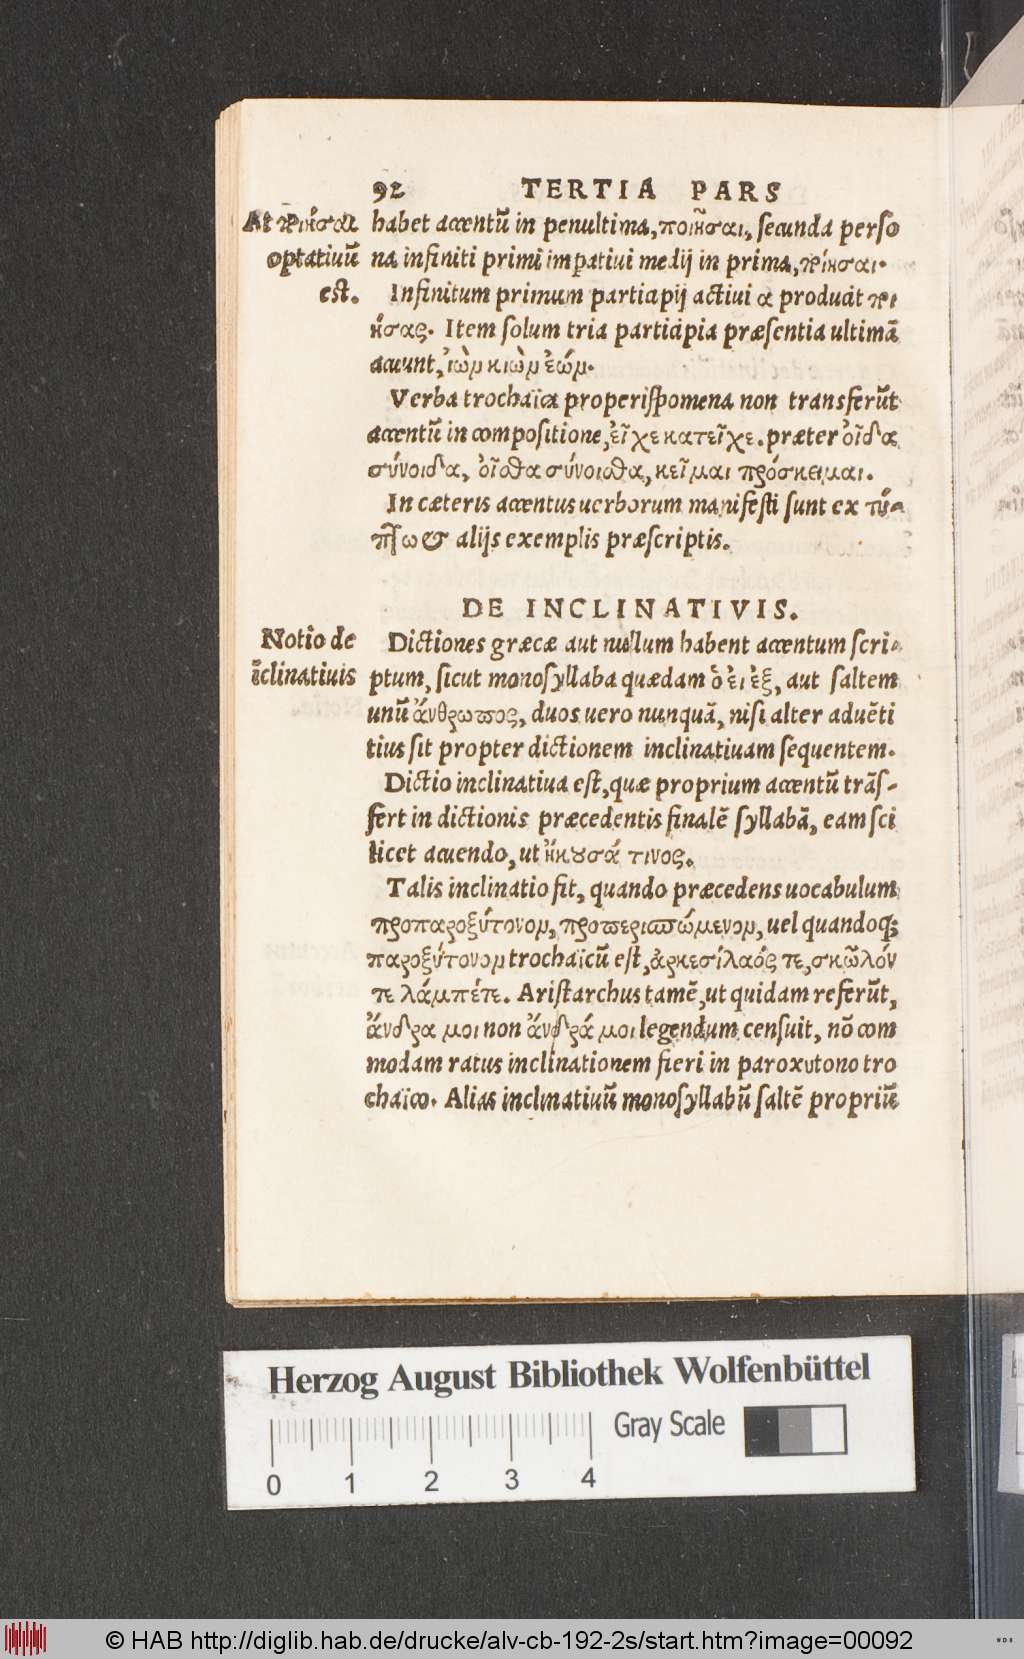 92 TERTIA PARS
At ποιήσαι habet accentũ in penultima, ποιῆσαι, secunda perso
optatiuũ na infiniti primi imperatiui medij in prima, ποίησαι.
est. Infinitum primum participij actiui α producit ποι
ήσας. Item solum tria participia præsentia ultimã
acuunt, ἰὼν κιὼν ἐών.
Verba trochaïca properispomena non transferũt
accentũ in compositione, εἶχε κατεῖχε. præter οἶδα
σύνοιδα, οἶσθα σύνοισθα, κεῖμαι πρόσκειμαι.
In cæteris accentus uerborum manifesti sunt ex τύ-
πτω & alijs exemplis præscriptis.
DE INCLINATIVIS.
Notio de Dictiones græcæ aut nullum habent accentum scri-
ĩclinatiuis ptum, sicut monosyllaba quædam ὁ εἰ ἐξ, aut saltem
unũ ἄνθρωπος, duos uero nunquã, nisi alter aduẽti
tius sit propter dictionem inclinatiuam sequentem.
Dictio inclinatiua est, quæ proprium accentũ trãs-
fert in dictionis præcedentis finalẽ syllabã, eam sci
licet acuendo, ut ἤκουσά τινος.
Talis inclinatio fit, quando præcedens uocabulum
προπαροξύτονον, προπερισπώμενον, uel quandoq;
παροξύτονον trochaïcũ est, ἀρκεσίλαός τε, σκῶλόν
τε λάμπέτε. Aristarchus tamẽ, ut quidam referũt,
ἄνδρα μοι non ἄνδρά μοι legendum censuit, nõ com
modam ratus inclinationem fieri in paroxutono tro
chaïco. Alias inclinatiuũ monosyllabũ saltẽ propriũ
Herzog August Bibliothek Wolfenbüttel
Gray Scale
0 1 2 3 4
© HAB http://diglib.hab.de/drucke/alv-cb-192-2s/start.htm?image=00092